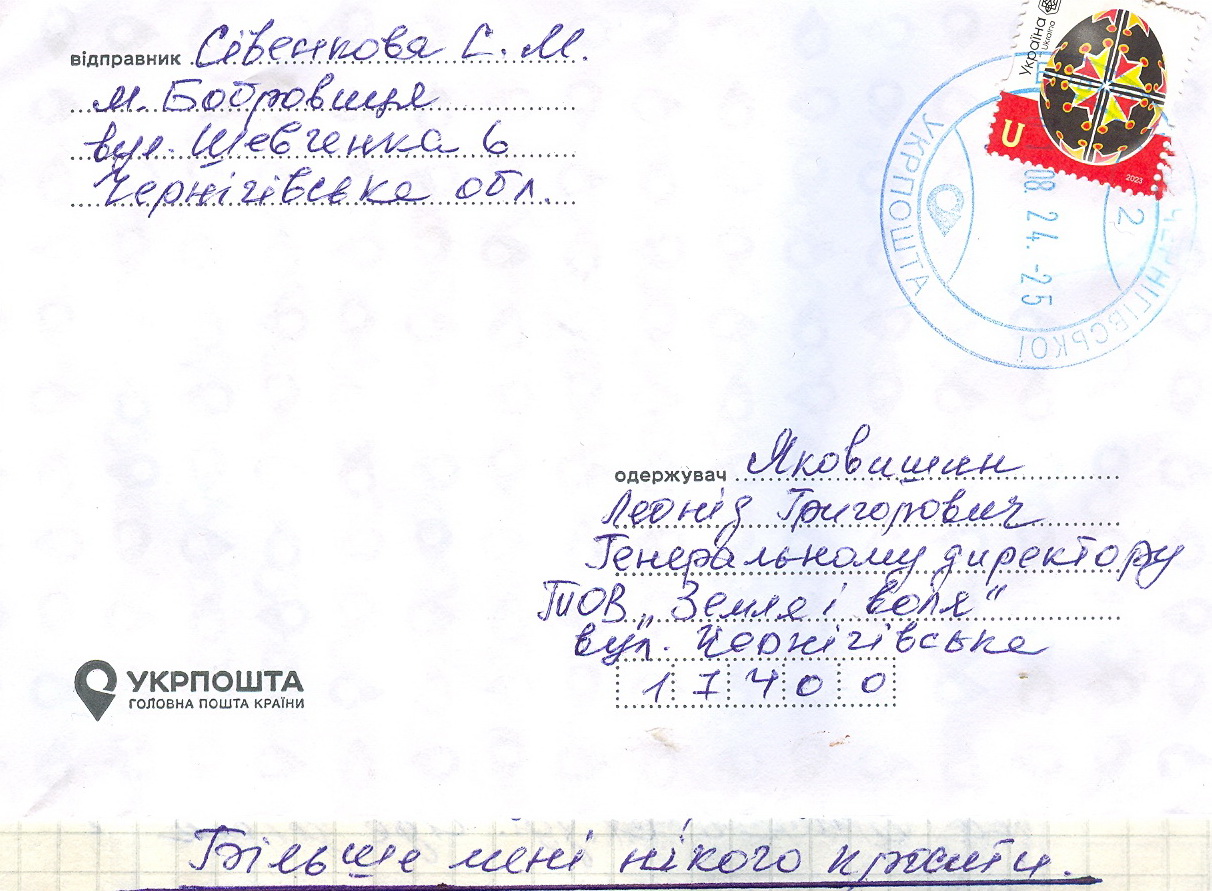 відправник Сівенкова С. М.
м. Бобровиця
вул. Шевченка 6
Чернігівська обл.
Україна
Ukraine
U
2023
УКРПОШТА
ЧЕРНІГІВСЬКОЇ
08 24. -25
2
одержувач Яковишин
Леонід Григорович
Генеральному директору
ТОВ „Земля і воля“
вул. Чернігівська
17400
УКРПОШТА
ГОЛОВНА ПОШТА КРАЇНИ
Більше мені нікого прохати.